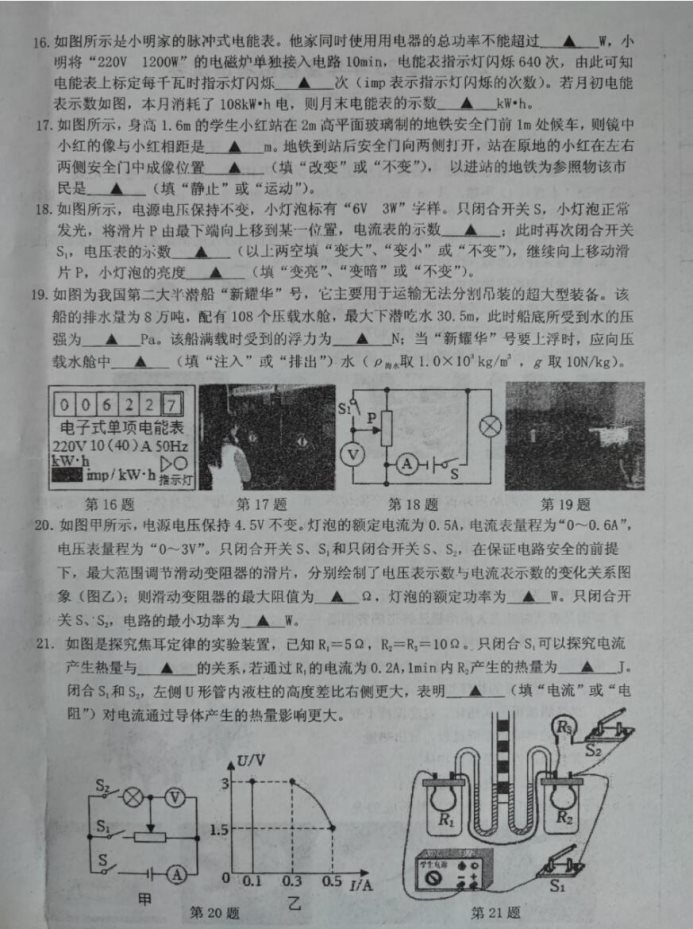 16. 如图所示是小明家的脉冲式电能表。他家同时使用用电器的总功率不能超过 ▲ W，小
明将“220V 1200W”的电磁炉单独接入电路 10min，电能表指示灯闪烁 640 次，由此可知
电能表上标定每千瓦时指示灯闪烁 ▲ 次（imp 表示指示灯闪烁的次数）。若月初电能
表示数如图，本月消耗了 108kW·h 电，则月末电能表的示数 ▲ kW·h。
17. 如图所示，身高 1.6m 的学生小红站在 2m 高平面玻璃制的地铁安全门前 1m 处候车，则镜中
小红的像与小红相距是 ▲ m。地铁到站后安全门向两侧打开，站在原地的小红在左右
两侧安全门中成像位置 ▲ （填“改变”或“不变”），以进站的地铁为参照物该市
民是 ▲ （填“静止”或“运动”）。
18. 如图所示，电源电压保持不变，小灯泡标有“6V 3W”字样。只闭合开关 S，小灯泡正常
发光，将滑片 P 由最下端向上移到某一位置，电流表的示数 ▲ ；此时再次闭合开关
S₁，电压表的示数 ▲ （以上两空填“变大”、“变小”或“不变”），继续向上移动滑
片 P，小灯泡的亮度 ▲ （填“变亮”、“变暗”或“不变”）。
19. 如图为我国第二大半潜船“新耀华”号，它主要用于运输无法分割吊装的超大型装备。该
船的排水量为 8 万吨，配有 108 个压载水舱，最大下潜吃水 30.5m，此时船底所受到水的压
强为 ▲ Pa。该船满载时受到的浮力为 ▲ N；当“新耀华”号要上浮时，应向压
载水舱中 ▲ （填“注入”或“排出”）水（ρ海水取 1.0×10³kg/m³，g 取 10N/kg）。
0 0 6 2 2 7
电子式单项电能表
220V 10(40)A 50Hz
kW·h
imp/kW·h 指示灯
S₁ P V A S
第 16 题 第 17 题 第 18 题 第 19 题
20. 如图甲所示，电源电压保持 4.5V 不变。灯泡的额定电流为 0.5A，电流表量程为“0～0.6A”，
电压表量程为“0～3V”。只闭合开关 S、S₁和只闭合开关 S、S₂，在保证电路安全的前提
下，最大范围调节滑动变阻器的滑片，分别绘制了电压表示数与电流表示数的变化关系图
象（图乙）；则滑动变阻器的最大阻值为 ▲ Ω，灯泡的额定功率为 ▲ W。只闭合开
关 S、S₂，电路的最小功率为 ▲ W。
21. 如图是探究焦耳定律的实验装置，已知 R₁=5Ω，R₂=R₃=10Ω。只闭合 S₁可以探究电流
产生热量与 ▲ 的关系，若通过 R₁的电流为 0.2A，1min 内 R₂产生的热量为 ▲ J。
闭合 S₁和 S₂，左侧 U 形管内液柱的高度差比右侧更大，表明 ▲ （填“电流”或“电
阻”）对电流通过导体产生的热量影响更大。
S₂ V
S₁
S A
甲
U/V
3
1.5
0 0.1 0.3 0.5 I/A
乙
第 20 题
R₃
S₂
R₁ R₂
学生电源
S₁
第 21 题